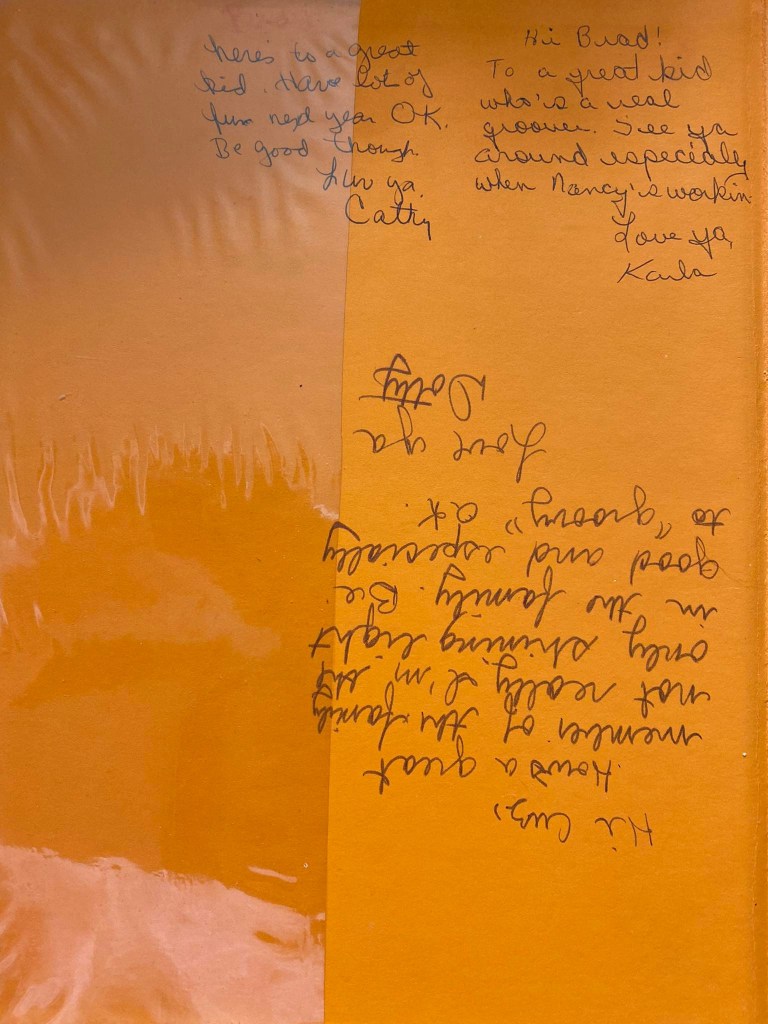 here's to a great
kid. Have lot of
fun next year OK.
Be good though.
Luv ya.
Cathy
Hi Brad!
To a great kid
who's a real
groover. See ya
around especialy
when Nancy's workin.
Love ya,
Karla
Hi Cuz,
How's a great
member of the family
not really, I'm the
only shining light
in the family. Be
good and especially
to "groovy" O.K.
Love ya
Dotty